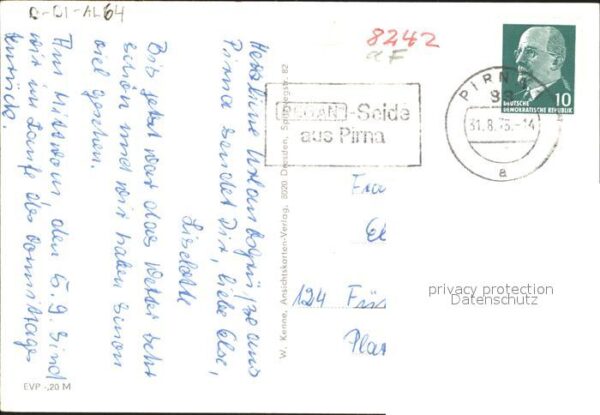 D-01-AL64
8242
aF
Herzliche Urlaubsgrüße aus
Pirna sendet Dir, liebe Else,
Liselotte
Bis jetzt war das Wetter sehr
schön und wir haben schon
viel gesehen.
Am Mittwoch, den 5.9 sind
wir im Laufe des Vormittages
zurück.
EVP -,20 M
W. Kenne, Ansichtskarten-Verlag, 8020 Dresden, 82
-Seide
aus Pirna
PIRNA
31.8.73.-14
a
DEUTSCHE
DEMOKRATISCHE REPUBLIK
10
Frau
El
124 Für
Pla
privacy protection
Datenschutz